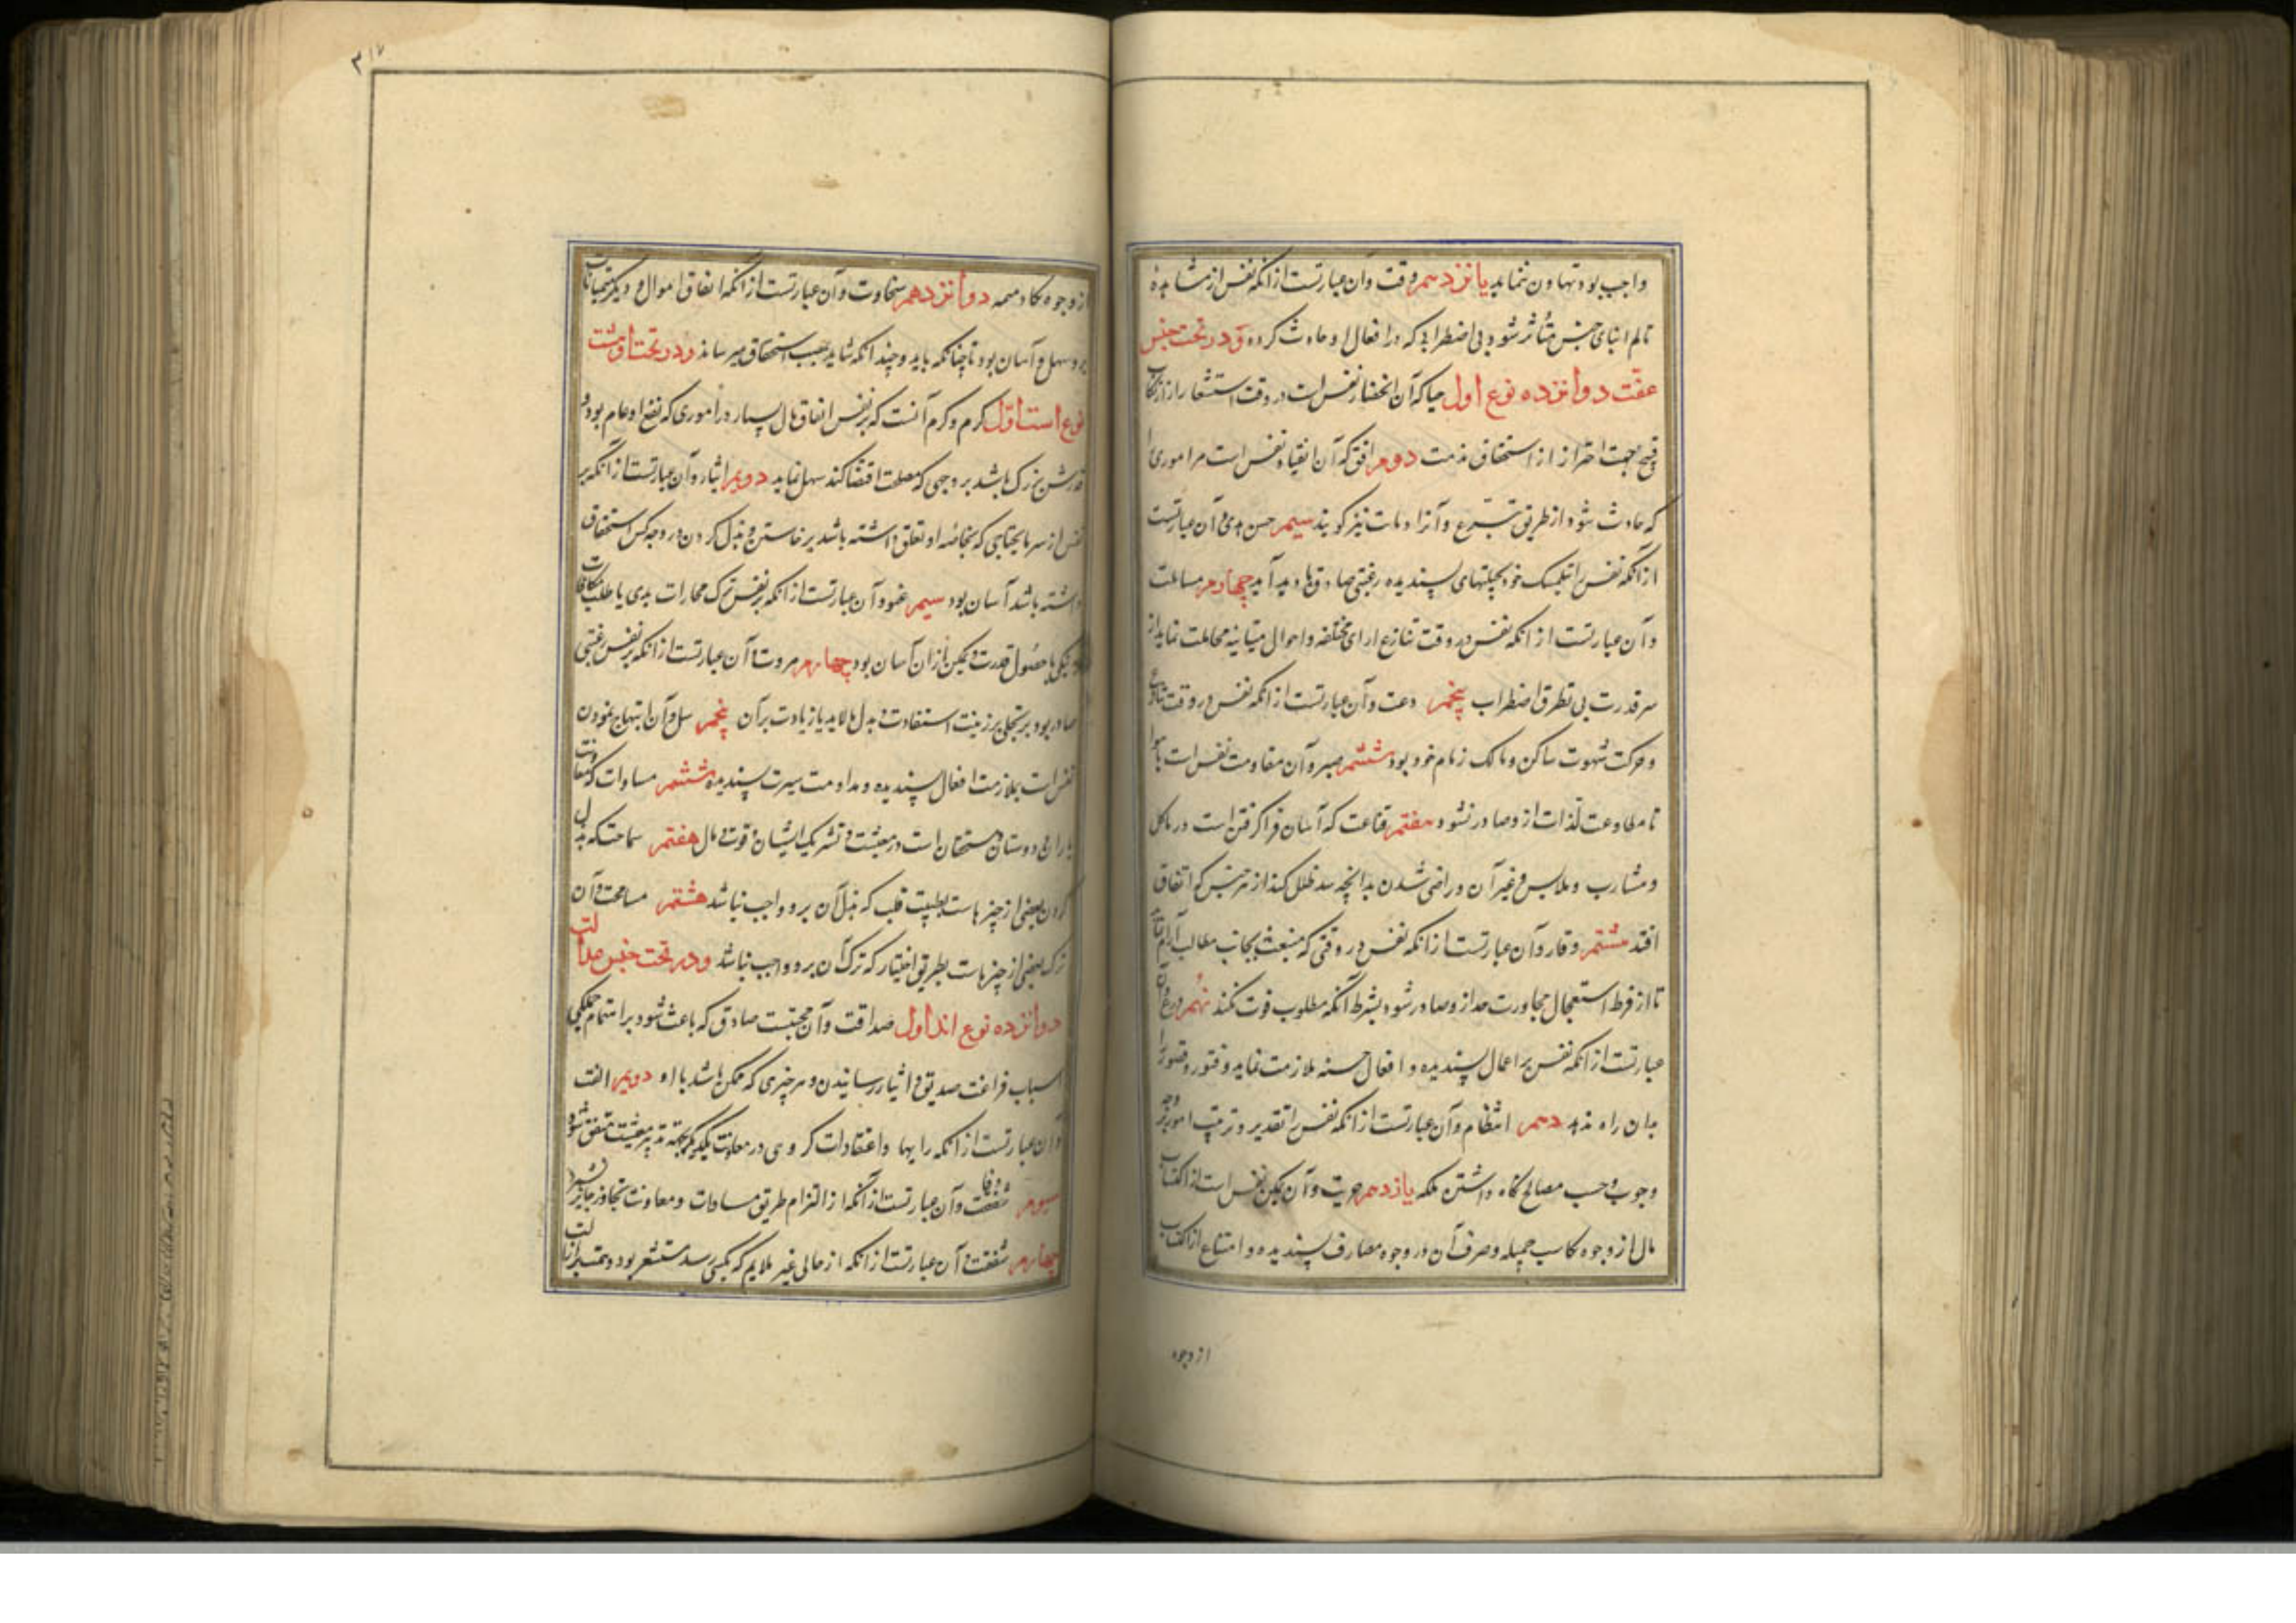 واجب بود تهاون ننماید یانزدهم رقت وآن عبارتست از آنکه نفس از مشاهدهٔ
تالم ابنای جنس متأثر شود بی اضطرابی که در افعال او حادث کردد و در تحت جنس
عفّت دوانزده نوع اول حیا که آن انحصار نفس است در وقت استشعار از ارتکاب
قبیح بجهت احتراز از استحقاق مذمت دوم رفق که آن انقیاد نفس است مر اموری را
که حادث شود از طریق تبرّع و آنرا دماثت نیز کویند سیم حسن هدی و آن عبارتست
از آنکه نفس را بتکمیل خود بحیلتهای پسندیده رغبتی صادق بادید آید چهارم مسالمت
وآن عبارتست از آنکه نفس در وقت تنازع ارای مختلفه و احوال متباینه مجاملت نماید از
سر قدرت بی تطرق اضطراب پنجم دعت وآن عبارتست از آنکه نفس در وقت
وحرکت شهوت ساکن و مالک زمام خود بود ششم صبر وآن مقاومت نفس است با هوا
تا مطاوعت لذات از و صادر نشود هفتم قناعت که آسان فرا کرفتن است در ماکل
ومشارب وملابس وغیر آن و راضی شدن بدانچه سد خلل کند از هر جنس که اتفاق
افتد هشتم وقار وآن عبارتست از آنکه نفس در وقتی که منبعث بجانب مطالب آرام
تا از فرط استعجال مجاورت حد از و صادر شود بشرط آنکه مطلوب فوت نکند نهم ورع و آن
عبارتست از آنکه نفس بر اعمال پسندیده و افعال حسنه ملازمت نماید و فتور و قصور را
بدان راه ندهد دهم انتظام وآن عبارتست از آنکه نفس را تقدیر و ترتیب امور بر وجه
وجوب وحسب مصالح نگاه داشتن ملکه یازدهم حریت وآن تمکین نفس است از اکتساب
مال از وجوه مکاسب جمیله و صرف آن در وجوه مصارف پسندیده و امتناع از اکتساب
از وجوه
۳۱۷
از وجوه مکاسب دوانزدهم سخاوت وآن عبارتست از آنکه انفاق اموال و دیگر
برو سهل و آسان بود تا چنانکه باید و چندانکه شاید بمصب استحقاق میرساند و در تحت او هشت
نوع است اول کرم و کرم آنست که بر نفس انفاق مال بسیار در اموری که نفع او عام بود و
قدرش بزرک باشد بر وجهی که مصلحت اقتضا کند سهل نماید دویم ایثار وآن عبارتست از آنکه بر
نفس از سر مایحتاجی که بخاصّه او تعلق داشته باشد برخاستن و بذل کردن در وجه کس استحقاق
داشته باشد آسان بود سیم عفو وآن عبارتست از آنکه بر نفس ترک مجازات بدی یا طلب مکافات
نیکی با حصول قدرت و تمکین از آن آسان بود چهارم مروت وآن عبارتست از آنکه بر نفس رغبتی
صادر بود بر تحلی بر زینت استفادت و بذل مالابد یا زیادت بر آن پنجم نیل و آن ابتهاج نمودن
نفس است بملازمت افعال پسندیده و مداومت سیرت پسندیده ششم مساوات که معاونت
یاران و دوستان و مستحقان است در معیشت و تشریک ایشان در قوت و مال هفتم سماحت که بذل
کردن بعضی از چیزهاست بطیب قلب که بذل آن برو واجب نباشد هشتم مسامحت و آن
ترک بعضی از چیزهاست بطریق اختیار که ترک آن برو واجب نباشد ودر تحت جنس عدالت
دوانزده نوع اند اول صداقت وآن محبتیست صادق که باعث شود بر اهتمام جملکی
اسباب فراغت صدیق و ایثار رسانیدن هر چیزی که ممکن باشد باو دویم الفت
وآن عبارتست از آنکه رایها واعتقادات کروهی در معاونت یکدیگر بجهت تدبیر معیشت متفق شود
سیوم وفا وآن عبارتست از آنکه از التزام طریق مساوات و معاونت تجاوز جایز نشمرد
چهارم شفقت وآن عبارتست از آنکه از حالی غیر ملایم که بکسی رسد مستشعر بود و همت بر ازالت